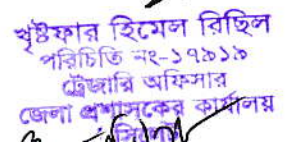 খৃষ্টফার হিমেল রিছিল
পরিচিতি নং-১৭৯১৯
ট্রেজারি অফিসার
জেলা প্রশাসকের কার্যালয়
সিলেট